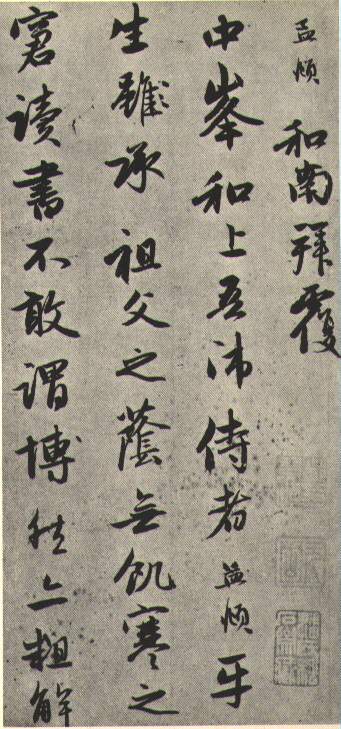 孟頫和南拜覆
中峯和上吾師侍者孟頫平
生雖承祖父之蔭無飢寒之
窘讀書不敢謂博然亦粗解